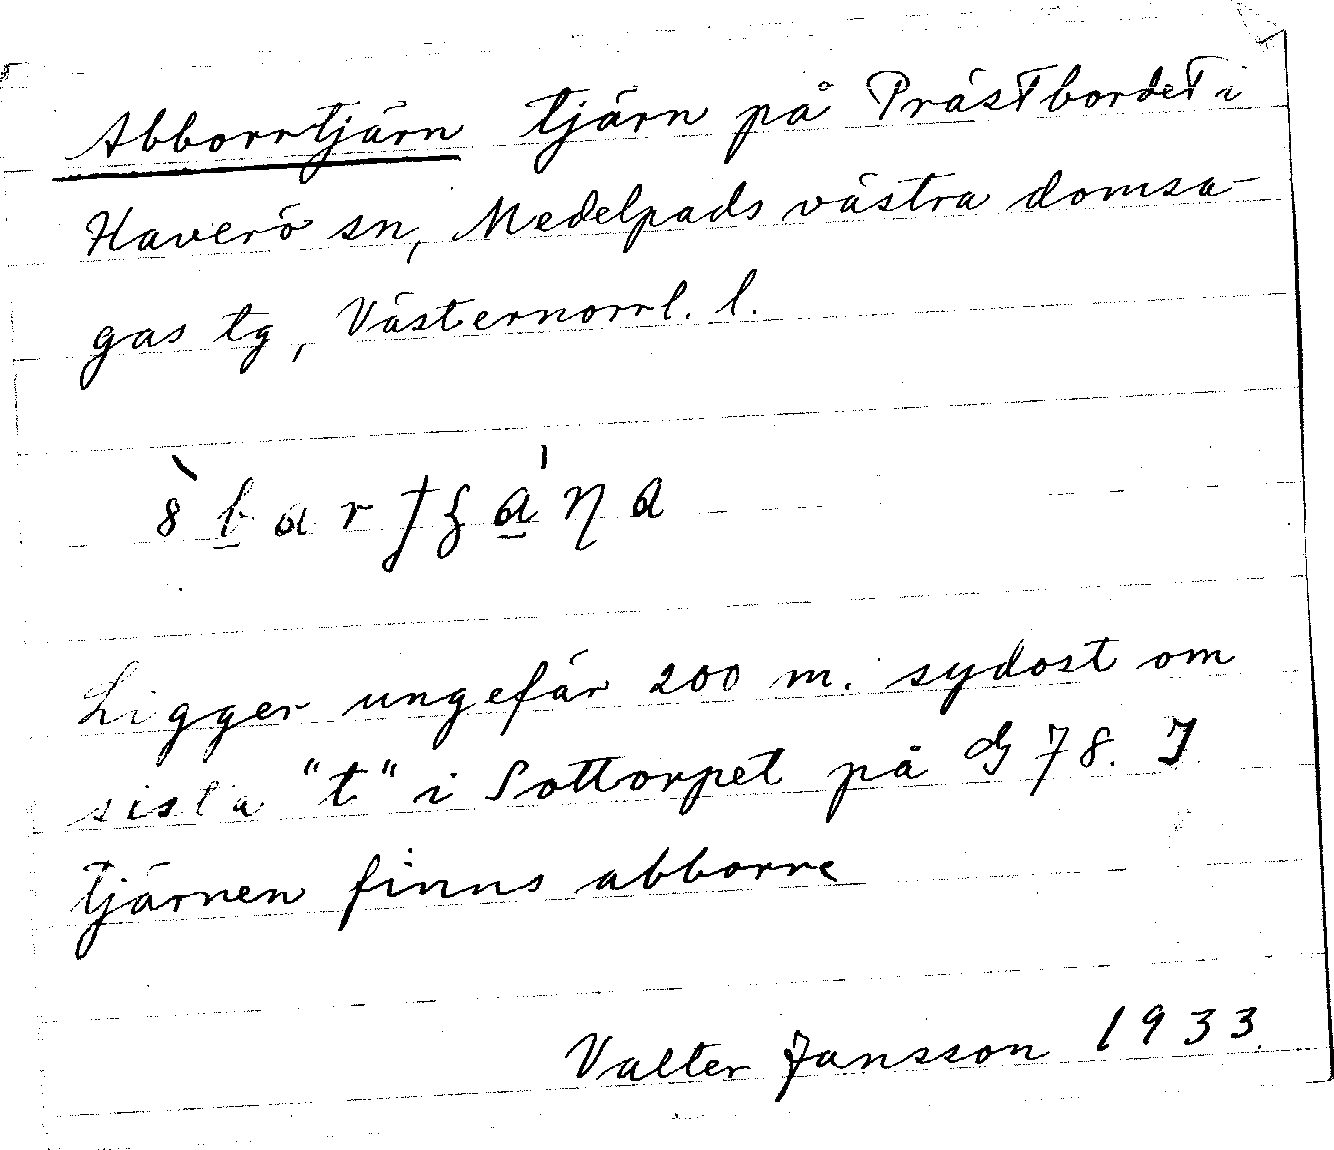 Abborrtjärn tjärn på Prästbordet i
Haverö sn, Medelpads västra domsa-
gas tg, Västernorrl. l.
Ligger ungefär 200 m. sydost om
sista "t" i Sottorpet på G 78. I
tjärnen finns abborre
Valter Jansson 1933.